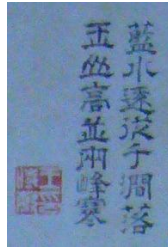 藍水遠從千澗落
玉山高並兩峰寒